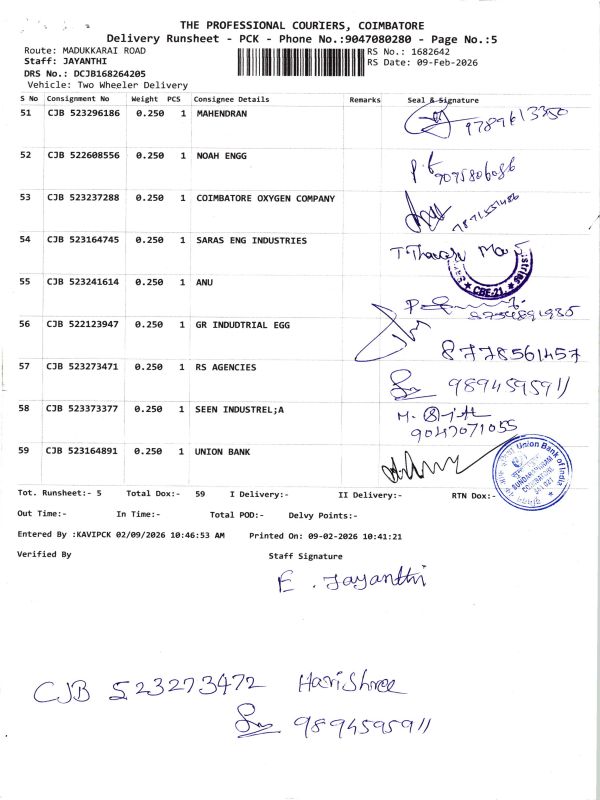 THE PROFESSIONAL COURIERS, COIMBATORE
Delivery Runsheet - PCK - Phone No.:9047080280 - Page No.:5
Route: MADUKKARAI ROAD RS No.: 1682642
Staff: JAYANTHI RS Date: 09-Feb-2026
DRS No.: DCJB168264205
Vehicle: Two Wheeler Delivery
S No Consignment No Weight PCS Consignee Details Remarks Seal & Signature
51 CJB 523296186 0.250 1 MAHENDRAN 9789613350
52 CJB 522608556 0.250 1 NOAH ENGG
53 CJB 523237288 0.250 1 COIMBATORE OXYGEN COMPANY
54 CJB 523164745 0.250 1 SARAS ENG INDUSTRIES
CBE-21.
55 CJB 523241614 0.250 1 ANU
56 CJB 522123947 0.250 1 GR INDUDTRIAL EGG 8778561457
57 CJB 523273471 0.250 1 RS AGENCIES 9894595911
58 CJB 523373377 0.250 1 SEEN INDUSTREL;A
9047071055
59 CJB 523164891 0.250 1 UNION BANK Union Bank of India
Tot. Runsheet:- 5 Total Dox:- 59 I Delivery:- II Delivery:- RTN Dox:-
Out Time:- In Time:- Total POD:- Delvy Points:-
Entered By :KAVIPCK 02/09/2026 10:46:53 AM Printed On: 09-02-2026 10:41:21
Verified By Staff Signature
E. Jayanthi
CJB 523273472 HariShree
9894595911